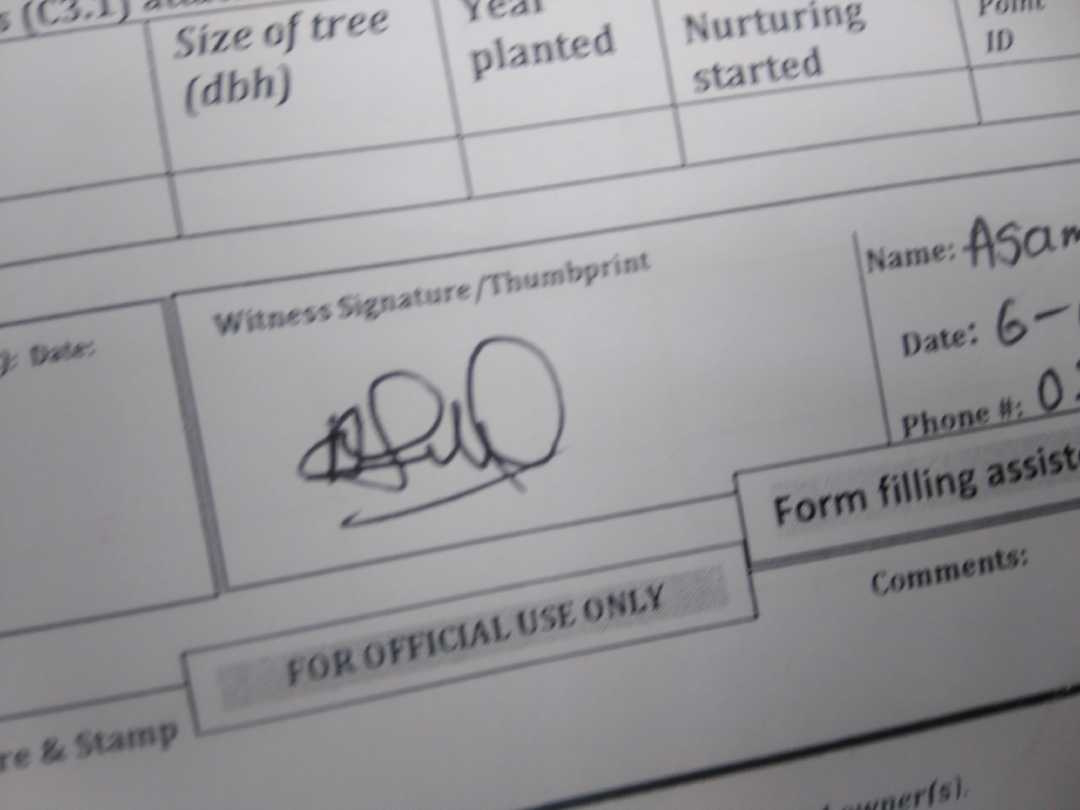 (C3.1)
Size of tree
(dbh)
Year
planted
Nurturing
started
Point
ID
Date:
Witness Signature/Thumbprint
Name: Asam
Date: 6-
Phone #: 0
Form filling assist
FOR OFFICIAL USE ONLY
Comments:
re & Stamp
owner(s).